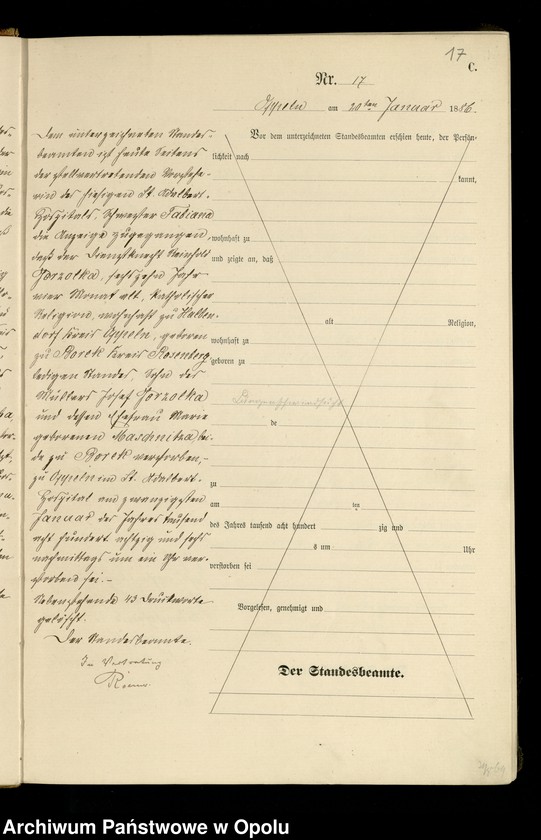 17
C.
Nr. 17
Oppeln am 20ten Januar 1886.
Dem unterzeichneten Standes-
beamten ist heute Seitens
der stellvertretenden Vorstehe-
rin des hiesigen St. Adalbert-
Hospitals Schwester Fabiana
die Anzeige zugegangen,
daß der Dienstknecht Reinhold
Gorzolka, sechszehn Jahr
Monat alt, katholischer
Religion, wohnhaft zu
dorf Kreis Oppeln, geboren
zu Borek Kreis Rosenberg,
ledigen Standes, Sohn des
Müllers Josef Gorzolka
und dessen Ehefrau Marie
geborenen bei-
de zu Borek verstorben,
zu Oppeln im St. Adalbert-
Hospital am zwanzigsten
Januar des Jahres tausend
acht hundert achtzig und sechs
nachmittags um ein Uhr ver-
storben sei.-
Nebenstehende 43 Druckworte
gelöscht.
Der Standesbeamte.
In Vertretung
Vor dem unterzeichneten Standesbeamten erschien heute, der Persön-
lichkeit nach
kannt,
wohnhaft zu
und zeigte an, daß
alt Religion,
wohnhaft zu
geboren zu
de
zu
am ten
des Jahres tausend acht hundert zig und
s um Uhr
verstorben sei
Vorgelesen, genehmigt und
Der Standesbeamte.
Archiwum Państwowe w Opolu